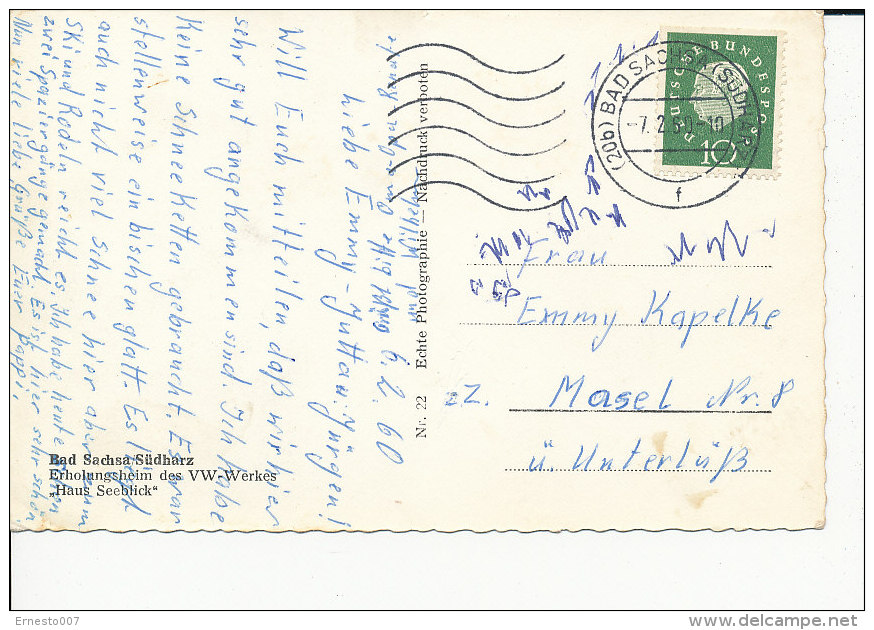 6. 2. 60
Liebe Emmy - Jutta u. Jürgen!
Will Euch mitteilen, daß wir hier
sehr gut angekommen sind. Ich habe
Keine Schneeketten gebraucht. Es war
stellenweise ein bischen glatt. Es liegt
auch nicht viel Schnee hier aber zum
Ski und Rodeln reicht es. Ich habe heute schon
zwei Spaziergänge gemacht. Es ist hier sehr schön
Nun viele liebe Grüße Euer Pappi.
Bad Sachsa/Südharz
Erholungsheim des VW-Werkes
„Haus Seeblick“
Nr. 22 Echte Photographie — Nachdruck verboten
DEUTSCHE BUNDESPOST
10
(20b) BAD SACHSA (SÜDHARZ)
-7. 2. 60-10
f
Frau
Emmy Kapelke
zz. Masel Nr. 8
ü. Unterlüß
Ernesto007
delcampe.net